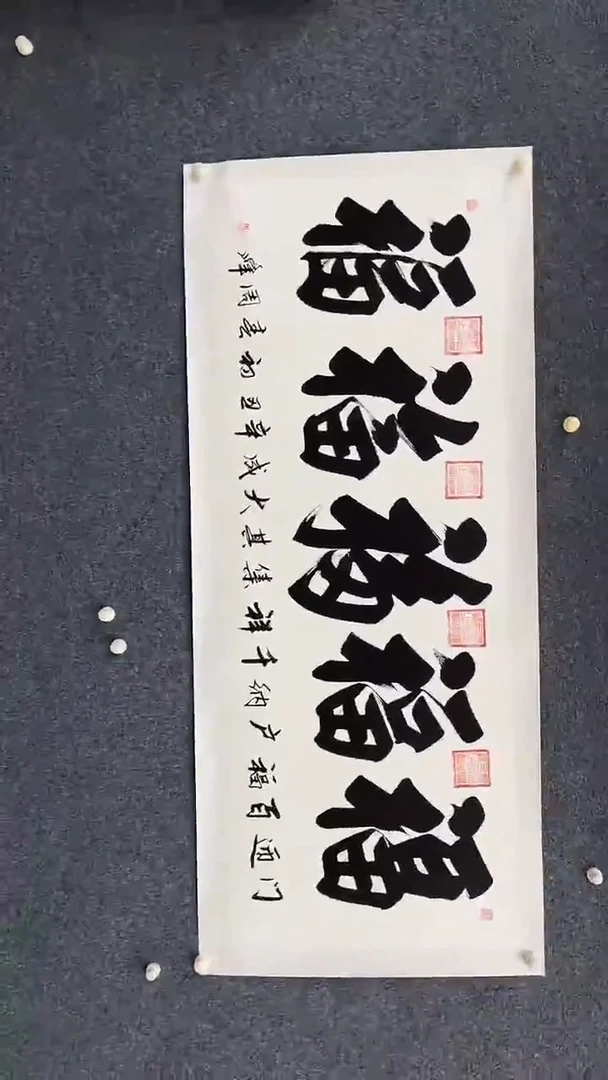 福福福福福
门迎百福户纳千祥集其大成辛丑初春周